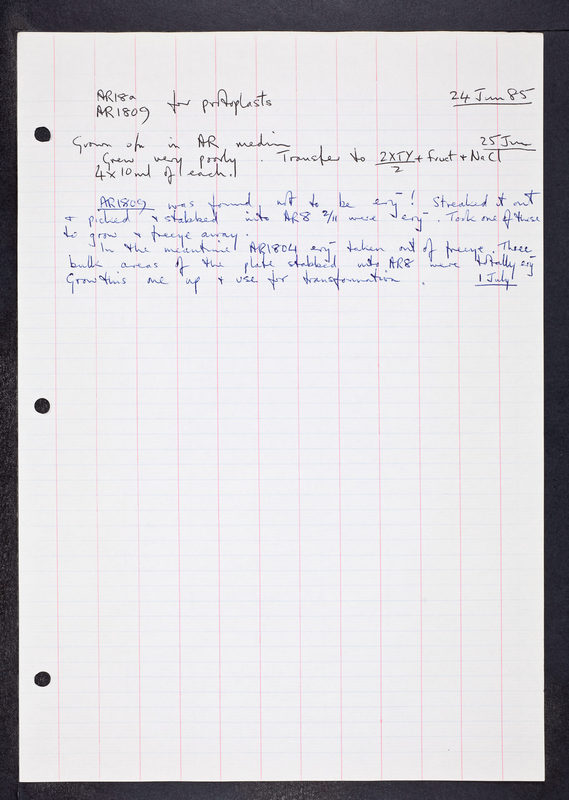 AR18a
AR1809 for protoplasts 24 Jun 85
Grown o/n in AR medium 25 Jun
Grew very poorly. Transfer to 2XTY/2 + fruct + NaCl
4 x 10ml of each.
AR1809 was found not to be ery⁻! Streaked it out
& picked & stabbed into AR8 2/11 were ery⁻. Took one of these
to grow & freeze away.
In the meantime AR1804 ery⁻ taken out of freeze. Three
bulk areas of the plate stabbed into AR8 were totally ery⁻
Grow this one up & use for transformation. 1 July